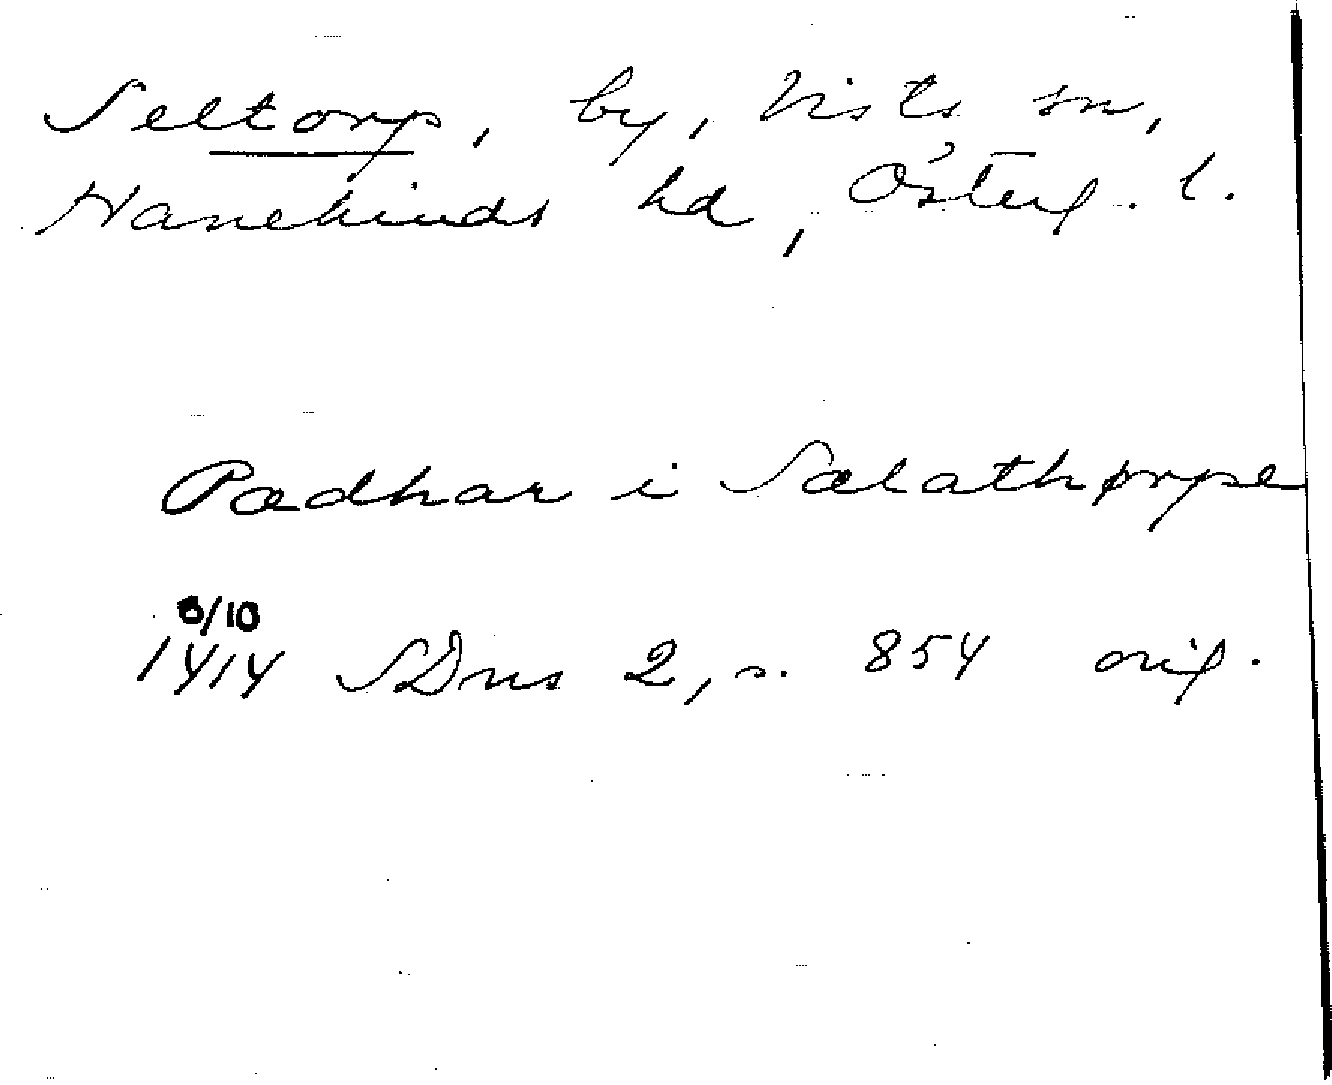 Seltorp, by, Vists sn,
Hanekinds hd, Österg. l.
Pædhar i Sælathørpe
8/10
1414 SDns 2, s. 854 orig.